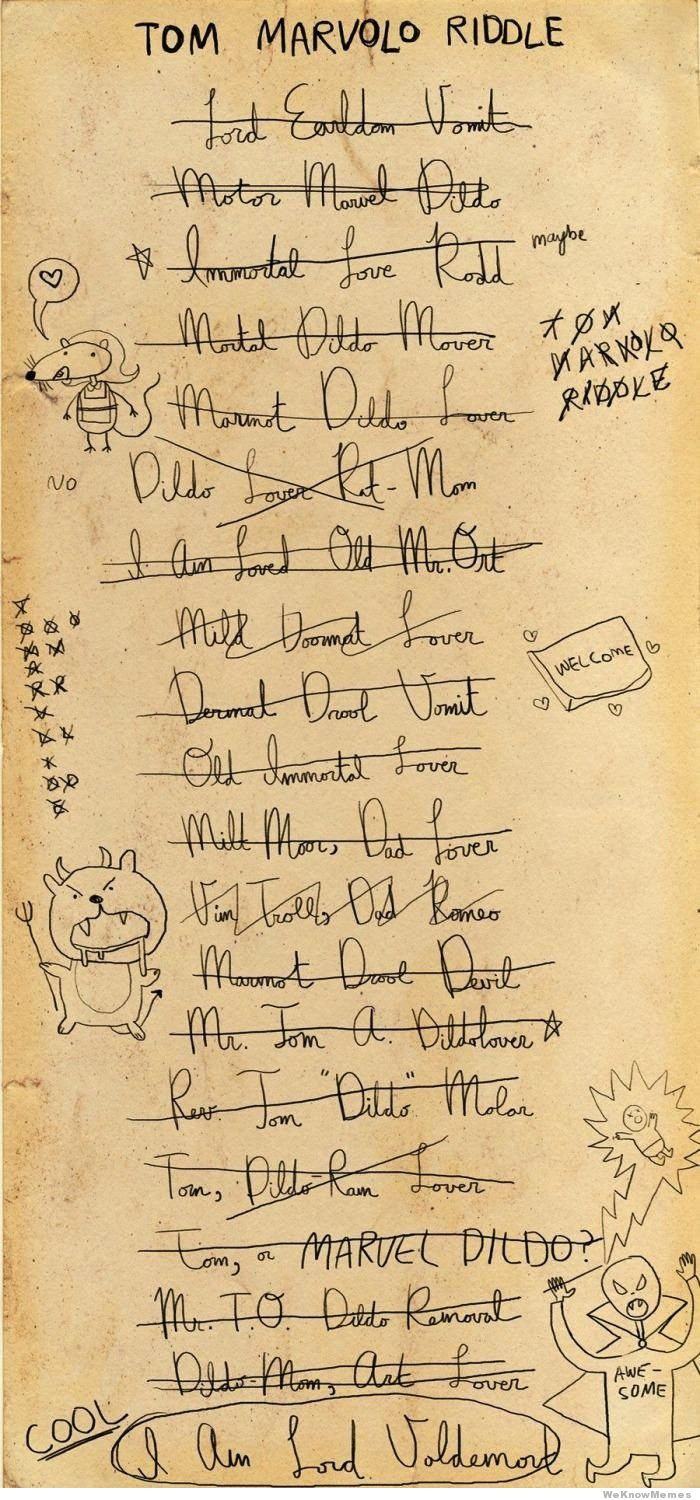 TOM MARVOLO RIDDLE
Lord Earldom Vomit
Motor Marvel Dildo
Immortal Love Rodd
maybe
Mortal Dildo Mover
TOM
MARVOLO
RIDDLE
Marmot Dildo Lover
Dildo Lover Rat-Mom
NO
I Am Loved Old Mr. Ort
Mild Doormat Lover
WELCOME
Dermal Drool Vomit
Old Immortal Lover
Milt Moor, Dad Lover
Vim Troll, Dad Romeo
Marmot Drool Devil
Mr. Tom A. Dildolover
Rev. Tom "Dildo" Molar
Tom, Dildo-Ram Lover
Tom, or MARVEL DILDO?
Mr. T.O. Dildo Removal
Dildo-Mom, Art Lover
AWE-
SOME
COOL
I Am Lord Voldemort
WeKnowMemes